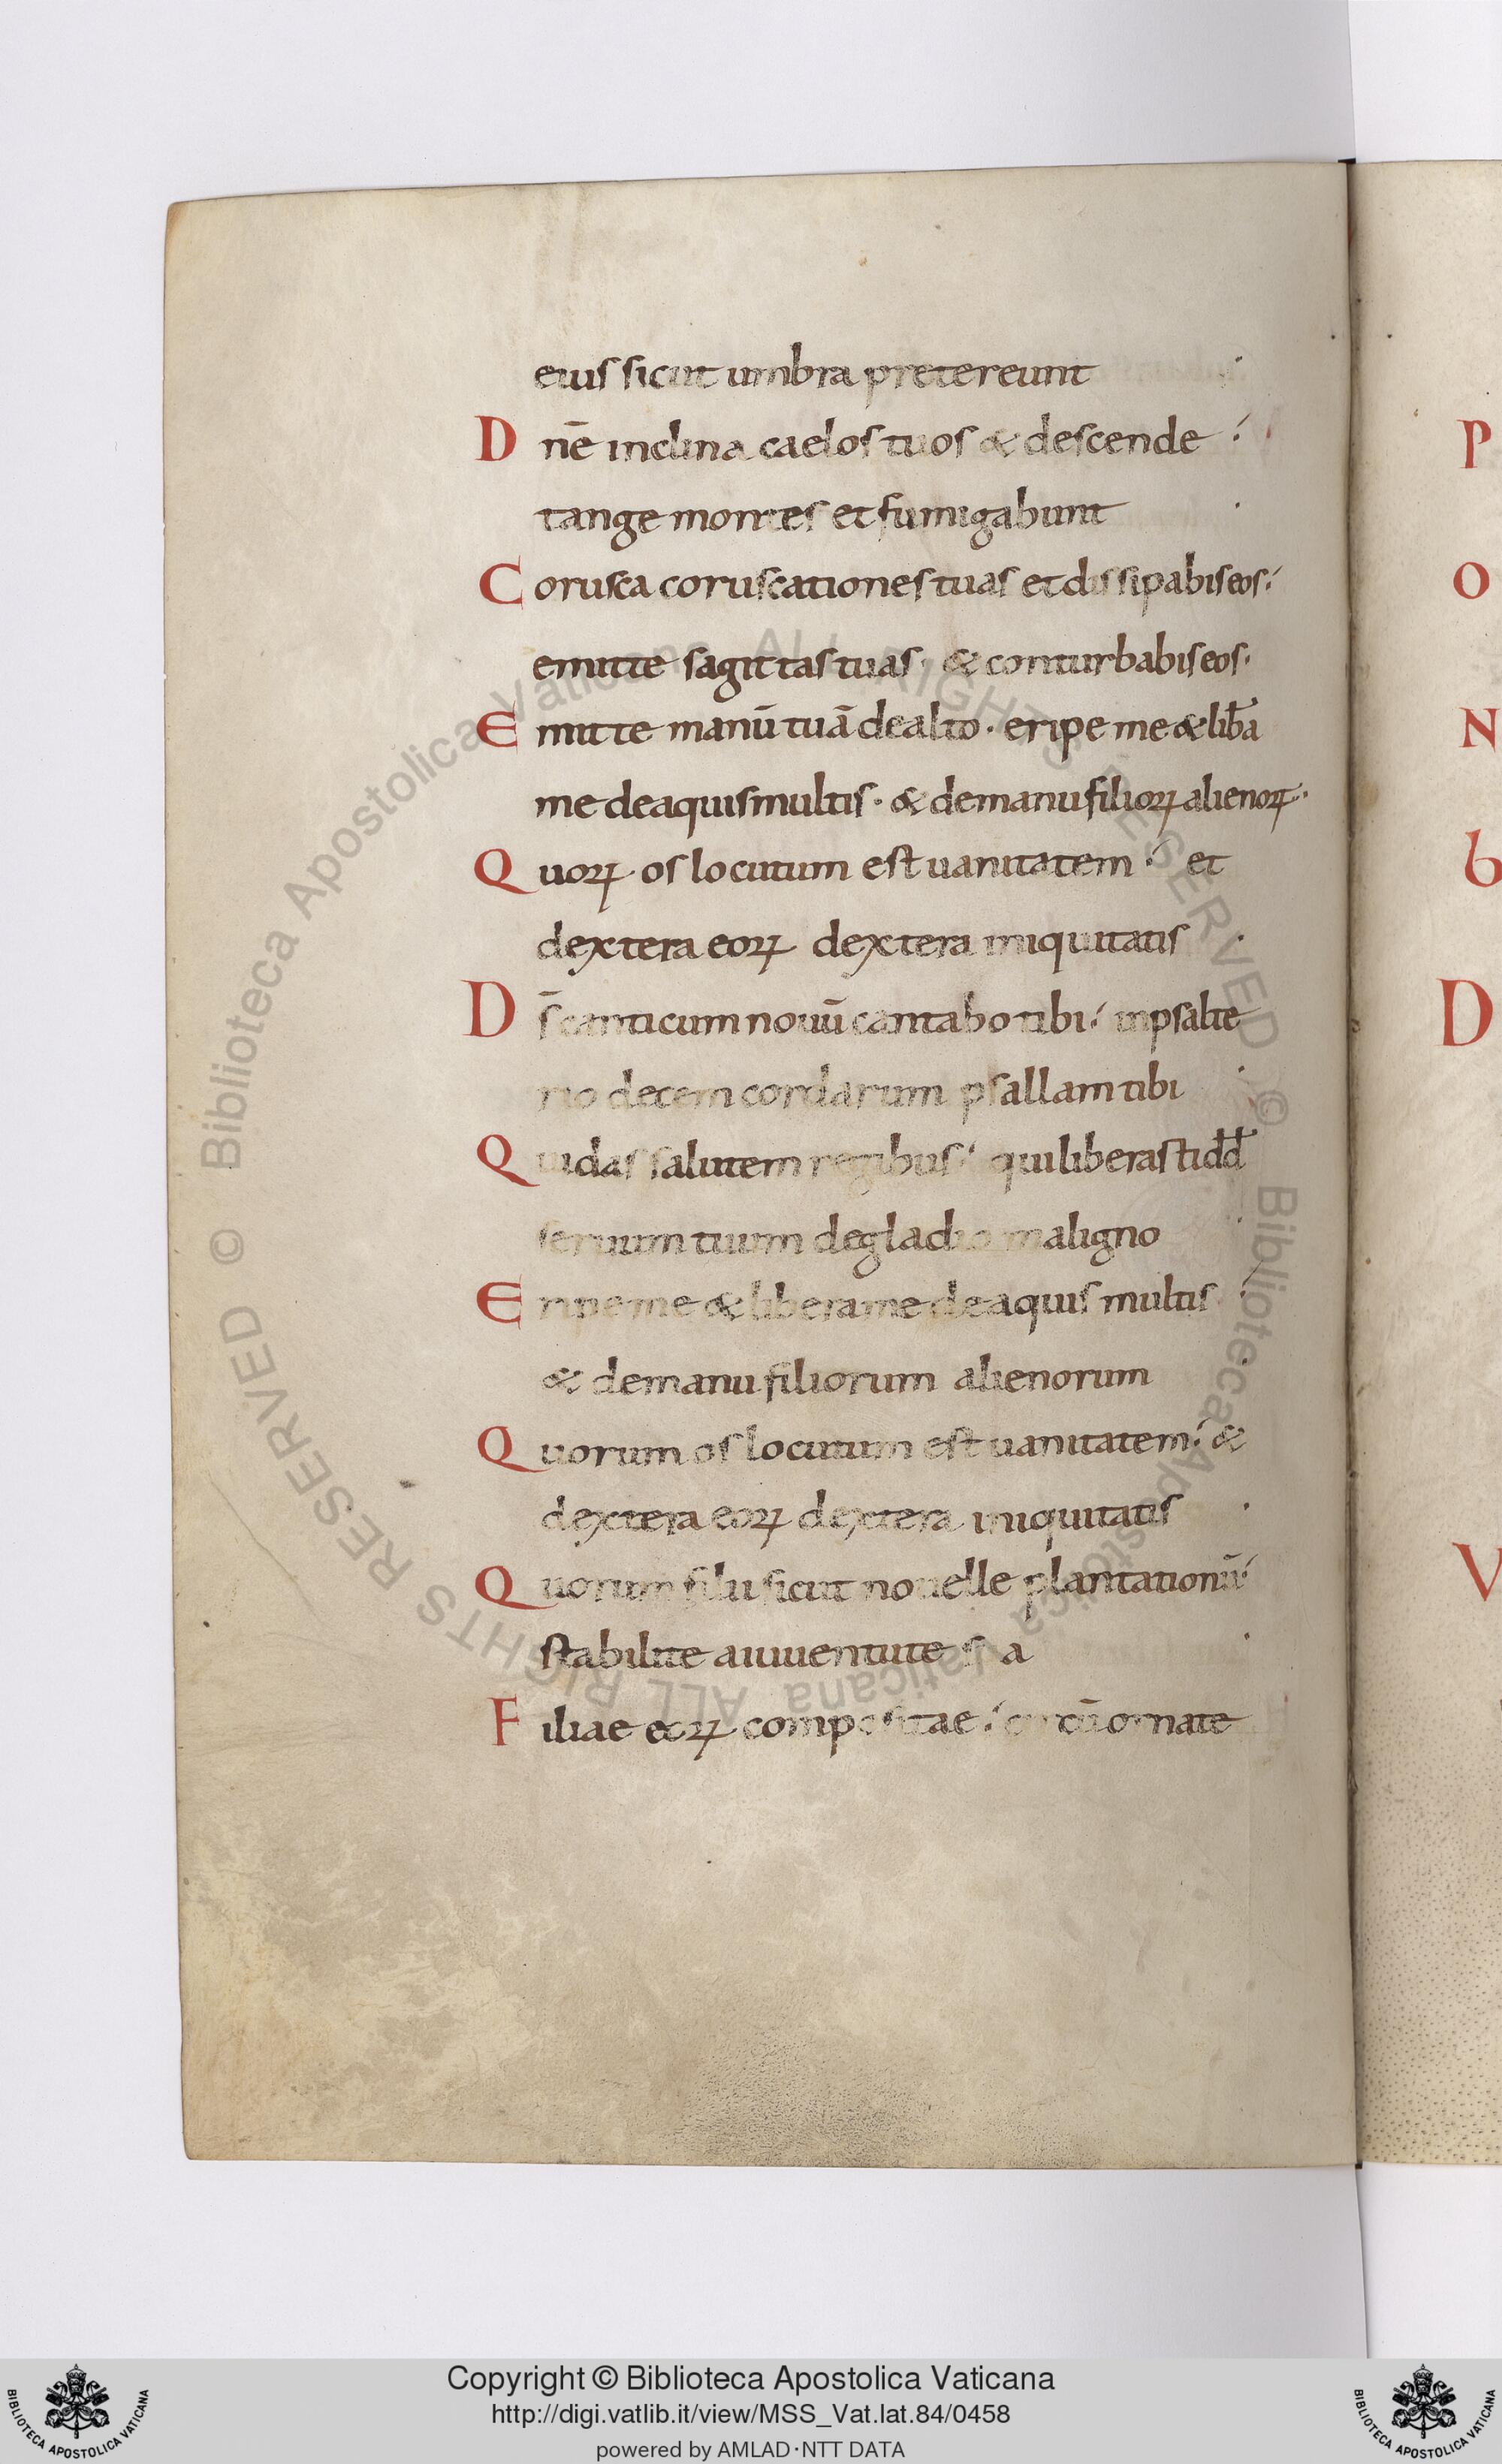 eius sicut umbra pretereunt ·
D nē inclina caelos tuos & descende ·́
tange montes et fumigabunt ·
C orusca coruscationes tuas et dissipabis eos ·́
emitte sagittas tuas · & conturbabis eos ·
E mitte manū tuā de alto · eripe me & lib̄a
me de aquis multis · & de manu filioꝝ alienoꝝ ·
Q uoꝝ os locutum est uanitatem ·́ et
dextera eoꝝ dextera iniquitatis ·
D s̄ canticum nouū cantabo tibi ·́ in psalte
rio decem cordarum psallam tibi ·
Q ui das salutem regibus ·́ qui liberasti dd̄
seruum tuum de gladio maligno ·
E ripe me & libera me de aquis multis ·́
& de manu filiorum alienorum ·
Q uorum os locutum est uanitatem ·́ &
dextera eoꝝ dextera iniquitatis ·
Q uorum filii sicut nouelle plantationū ·́
stabilite a iuuentute s a ·
F iliae eoꝝ compositae ·́ circū ornate
P
O
N
b
D
V
© Biblioteca Apostolica Vaticana ALL RIGHTS RESERVED © Biblioteca Apostolica Vaticana ALL RIGHTS RESERVED
Copyright © Biblioteca Apostolica Vaticana
http://digi.vatlib.it/view/MSS_Vat.lat.84/0458
powered by AMLAD·NTT DATA
BIBLIOTECA APOSTOLICA VATICANA
BIBLIOTECA APOSTOLICA VATICANA